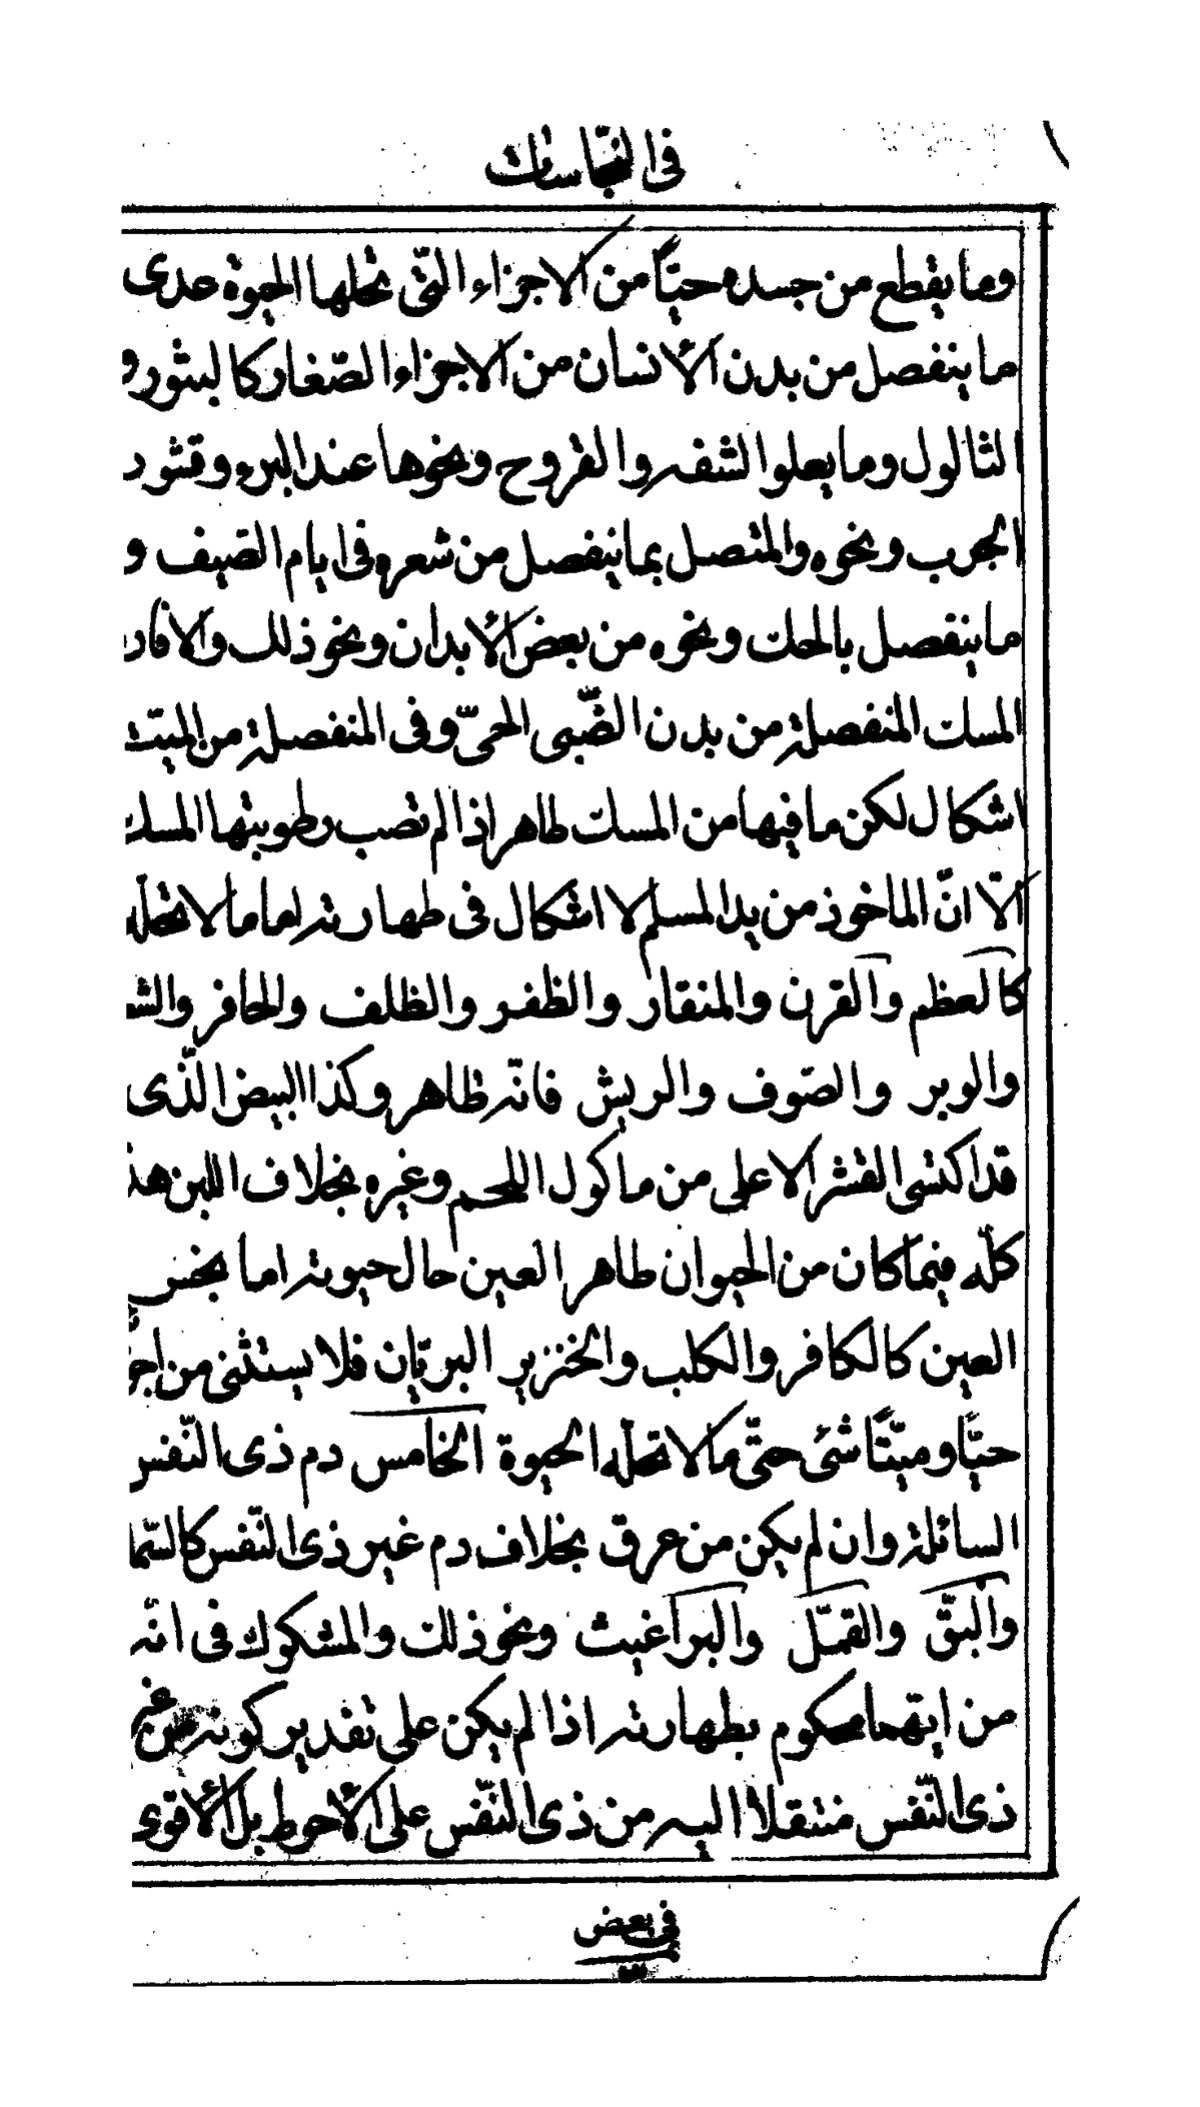 فى النّجاسات
وما يقطع من جسده حيّاً من الاجزاء الّتى تحلها الحيوة عدى
ما ينفصل من بدن الأنسان من الاجزاء الصّغار كالبثور و
الثالول وما يعلوا الشفه والقروح ونحوها عند البرء وقشور
الجرب ونحوه والمتصل بما ينفصل من شعره فى ايام الصيف و
ما ينفصل بالحك ونحوه من بعض الأبدان ونحو ذلك والافارة
المسك المنفصلة من بدن الضّبى الحىّ وفى المنفصلة من الميّت
اشكال لكن ما فيها من المسك طاهر اذا لم تصب رطوبتها المسك
الاّ انّ الماخوذ من يد المسلم لا اشكال فى طهارته اما ما لا تحلّه
كالعظم والقرن والمنقار والظفر والظلف والحافر والشعر
والوبر والصّوف والريش فانّه طاهر وكذا البيض الّذى
قد اكتسى القشر الاعلى من ماكول اللحم وغيره بخلاف اللبن هذا
كلّه فيما كان من الحيوان طاهر العين حال حيوته اما نجس
العين كالكافر والكلب والخنزير البريّان فلا يستثنى من اجزائه
حيّاً وميّتاً شئ حتّى ما لا تحلّه الحيوة الخامس دم ذى النّفس
السائلة وان لم يكن من عرق بخلاف دم غير ذى النّفس كالسّمك
والبقّ والقمّل والبراغيث ونحو ذلك والمشكوك فى انّه
من ايّهما محكوم بطهارته اذا لم يكن على تقدير كونه من غير
ذى النّفس منتقلا اليه من ذى النّفس على الأحوط بل الأقوى
فى بعض